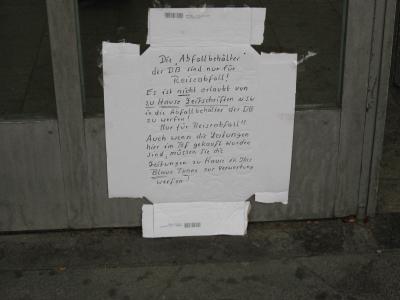 Die Abfallbehälter
der DB sind nur für
Reiseabfall!
Es ist nicht erlaubt von
zu Hause Zeitschriften u.s.w
in die Abfallbehälter der DB
zu werfen!
Nur für Reiseabfall!!
Auch wenn die Zeitungen
hier im Bf gekauft wurden
sind, müssen Sie die
Zeitungen zu Hause in Ihre
Blaue Tonne zur Verwertung
werfen!